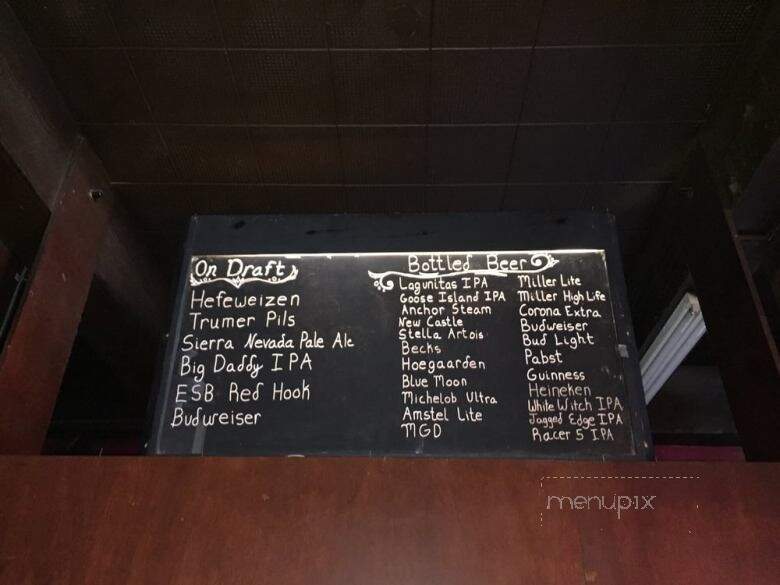 On Draft
Hefeweizen
Trumer Pils
Sierra Nevada Pale Ale
Big Daddy IPA
ESB Red Hook
Budweiser
Bottled Beer
Lagunitas IPA
Goose Island IPA
Anchor Steam
New Castle
Stella Artois
Becks
Hoegaarden
Blue Moon
Michelob Ultra
Amstel Lite
MGD
Miller Lite
Miller High Life
Corona Extra
Budweiser
Bud Light
Pabst
Guinness
Heineken
White Witch IPA
Jagged Edge IPA
Racer 5 IPA
menupix